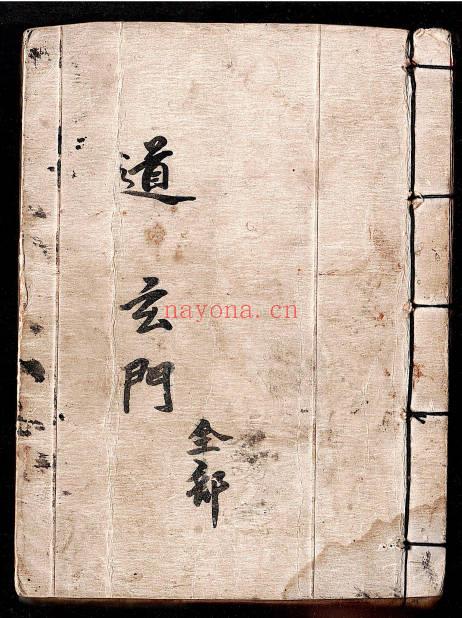 道玄門
全部
nayona.cn